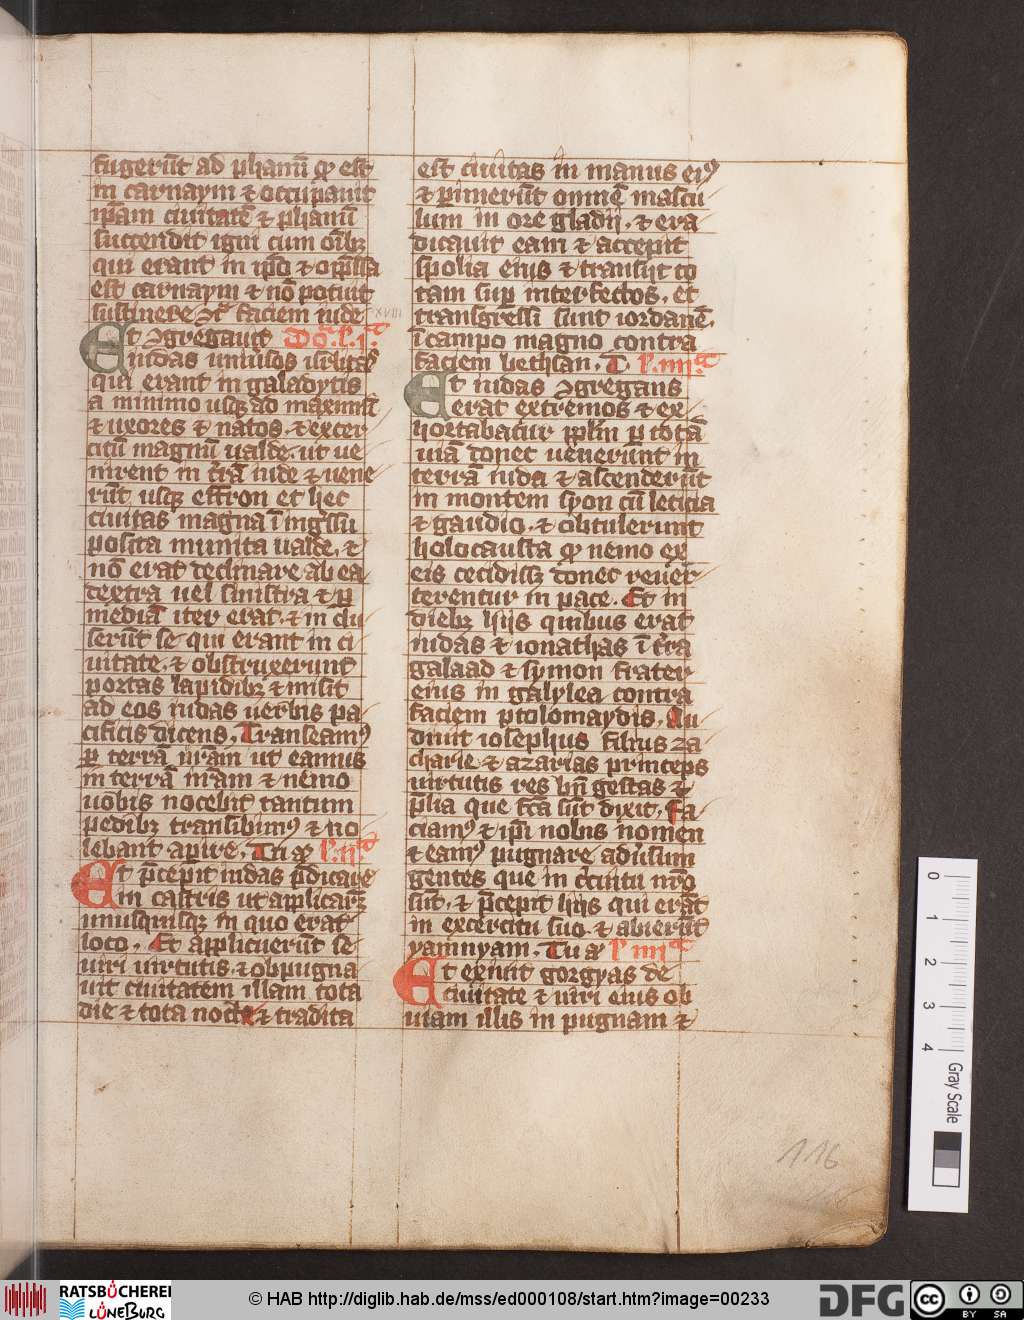 fugerūt ad phanū qꝫ est
in carnaym ⁊ occupauit
ip̄am ciuitatē ⁊ phanū
succendit igni cum oībꝫ
qui erant in ip̄o ⁊ opp̄ssa
est carnaym ⁊ nō potuit
sustinere ꝯtͣ faciem iude
XVIII
Et ꝯgregauit Dōͣ. l̓. i.ͣ
iudas uniūsos isrl̓itas
qui erant in galadytis
a minimo usqꝫ ad maximū
⁊ uxores ⁊ natos. ⁊ exer
citū magnū ualde. ut ue
nirent in t̄rā iude ⁊ uene
rūt usqꝫ effron et hec
ciuitas magna ī inḡssu
posita munita ualde. ⁊
nō erat declinare ab ea
dextra uel sinistra ⁊ ꝑ
mediā iter erat. ⁊ inclu
serūt se qui erant in ci
uitate. ⁊ obstruxerunt
portas lapidibꝫ ⁊ misit
ad eos iudas uerbis pa
cificis dicens. Transeamꝰ
ꝑ terrā ur̄am ut eamus
in terrā nr̄am ⁊ nemo
uobis nocebit tantum
pedibꝫ transibimꝰ ⁊ no
lebant aperire. Tu aū l̓. ij.ͣ
Et p̄cepit iudas p̄dicare
in castris ut applicarēt
unusquisqꝫ in quo erat
loco. Et applicuerūt se
uiri uirtutis. ⁊ obpugna
uit ciuitatem illam tota
die ⁊ tota nocte ⁊ tradita
est ciuitas in manus eiꝰ
⁊ ꝑimerūt omnē mascu
lum in ore gladij. ⁊ era
dicauit eam ⁊ accepit
spolia eius ⁊ transijt to
tam suꝑ interfectos. et
transgressi sunt iordanē.
ī campo magno contra
faciem bethsan. T. l̓. iii.ͣ
Et iudas ꝯgregans
erat extremos ⁊ ex
hortabatur ppl̄m ꝑ totā
uiā donec uenerunt in
terrā iuda ⁊ ascenderūt
in montem syon cū leticia
⁊ gaudio. ⁊ obtulerunt
holocausta qꝫ nemo ex
eis cecidissꝫ donec reuer
terentur in pace. Et in
diebꝫ hijs quibus erat
iudas ⁊ ionathas ī t̄ra
galaad ⁊ symon frater
eius in galylea contra
faciem ptolomaydis. Au
diuit iosephus filius za
charie ⁊ azarias princeps
uirtutis res bn̄ gestas ⁊
p̄lia que fc̄a sūt dixit. Fa
ciamꝰ ⁊ ip̄i nobis nomen
⁊ eamꝰ pugnare adūsum
gentes que in c̄cuitu nr̄o
sūt. ⁊ p̄cepit hijs qui erāt
in exercitu suo. ⁊ abierūt
yamnyam. Tu aū l̓. iiii.ͣ
Et exiuit gorgyas de
ciuitate ⁊ uiri eius ob
uiam illis in pugnam ⁊
116
0
1
2
3
4
Gray Scale
RATSBÜCHEREI
LÜNEBURG
© HAB http://diglib.hab.de/mss/ed000108/start.htm?image=00233
DFG
cc
BY SA